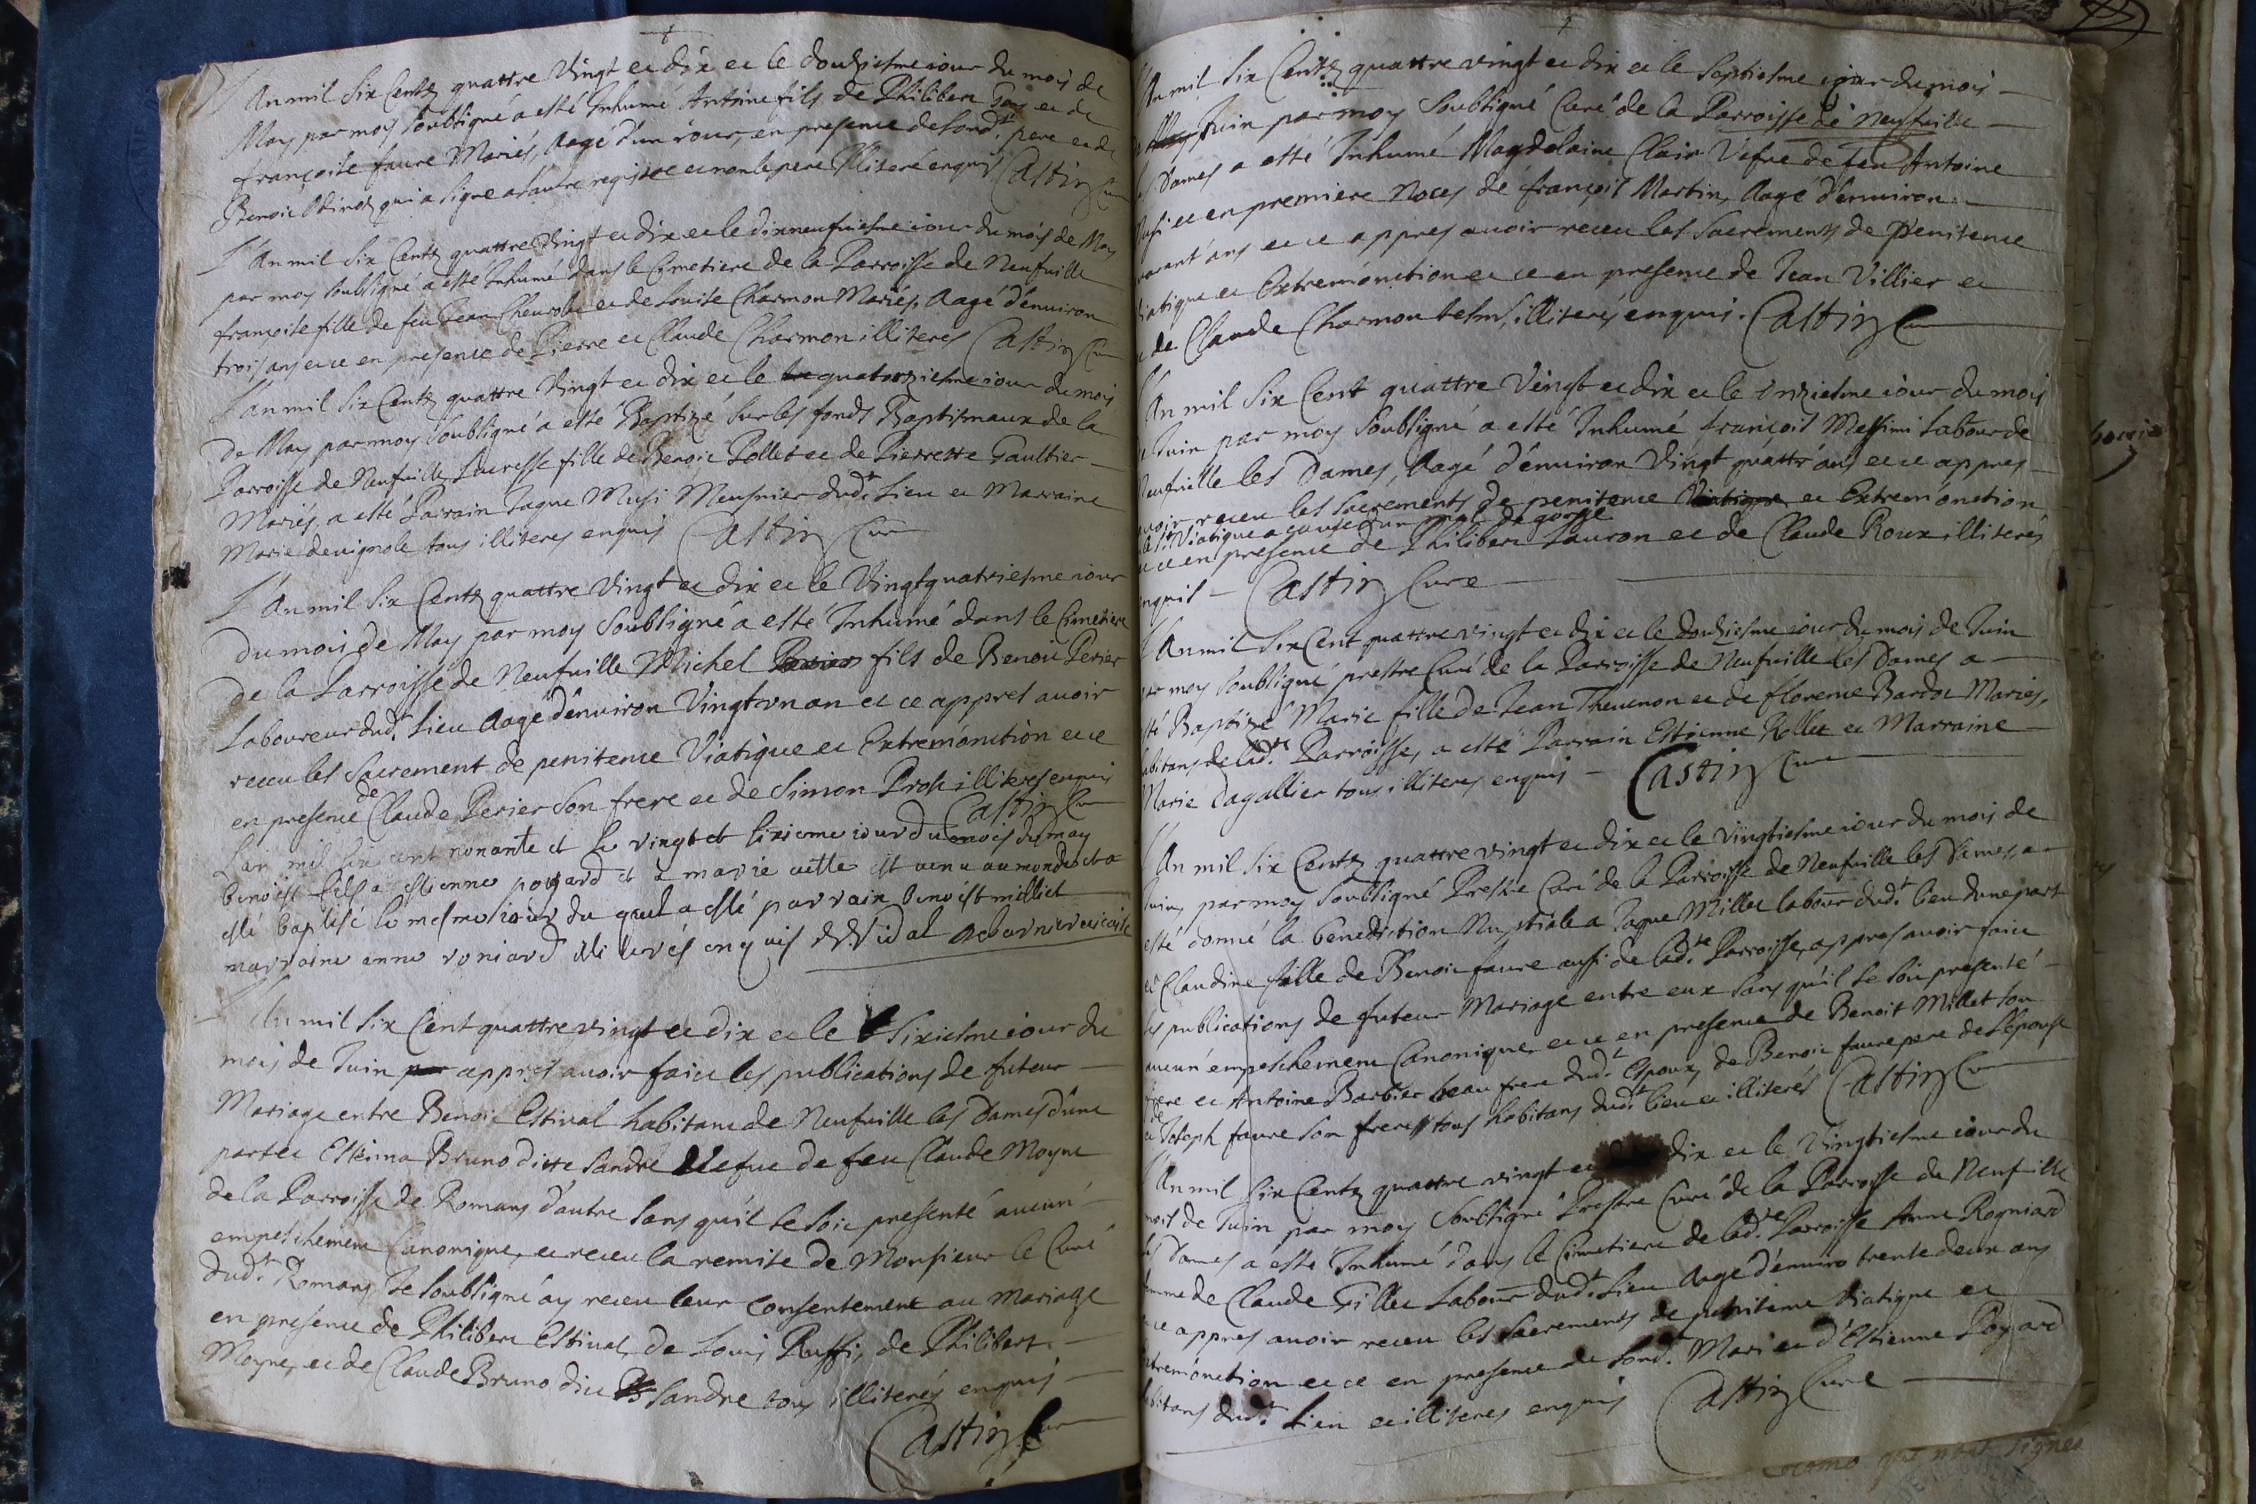 L'An mil Six Centz quattre Vingt et dix et le douziesme iour du mois de
May par moy soubsigné a esté Inhumé Antoine fils de Philibert et de
françoise faure Mariés, Aagé d'un iour, en presence de sond.t pere et de
Benoit qui a signé a l'autre registre et non le pere Illiteré enquis Castin Cur
L'An mil Six Centz quattre Vingt et dix et le dixneufuiesme iour du mois de May
par moy soubsigné a esté Inhumé dans le Cimetiere de la Parroisse de Neufuille
françoise fille de feu Jean et de Louise Charmon Mariés, Aagé d'enuiron
trois ans et ce en presence de Pierre et Claude Charmon illiteres Castin Cur
L'an mil Six Centz quattre Vingt et dix et le quatorziesme iour du mois
de May par moy Soubsigné a esté Baptizé sur les fonds Baptismaux de la
Parroisse de Neufuille fille de Benoit Pollet et de Pierrette Gaultier
Mariés, a esté Parrain Jaque Musi Meusnier dud.t Lieu et Marraine
Marie deuignole tous illiteres enquis Castin Cur
L'An mil Six Centz quattre Vingt et dix et le Vingtquatriesme iour
du mois de May par moy Soubsigné a esté Inhumé dans le Cimetiere
de la Parroisse de Neufuille Michel fils de Benoit Perier
Laboureur dud.t Lieu Aagé d'enuiron Vingt vn an et ce appres auoir
receu les Sacrement de penitence Viatique et Extremonction et ce
en presence de Claude Perier son frere et de Simon illiteres enquis
Castin Cur
L'an mil six cent nonante et le vingt et sixieme iour du mois de may
benoist fils a estienne poyard et a marie est venu au monde et a
esté baptisé le mesme iour du quel a esté parrain benoist milliet
marraine anne roniard illiterés enquis Vidal
L'An mil Six Cent quattre vingt et dix et le Sixiesme iour du
mois de Juin appres auoir faict les publications de futeur
Mariage entre Benoit Estiual habitant de Neufuille les Dames d'une
part et Bruno ditte Sandre Vefue de feu Claude Moyne
de la Parroisse de Romans d'autre sans qu'il se soit presenté aucun
empeschement Canonique, et receu la remise de Monsieur le Curé
dud.t Romans Je soubsigné ay receu leur consentement au mariage
en presence de Philibert Estiual, de Louis Ruffi, de Philibert
Moyne, et de Claude Bruno dit Sandre tous illiterés enquis
Castin Cur
L'An mil Six Centz quattre vingt et dix et le Septiesme iour du mois
de Juin par moy Soubsigné Curé de la Parroisse de Neufuille
les Dames a esté Inhumé Magdelaine Clair Vefue de feu Antoine
Musi et en premiere Noces de françois Martin, Aagé d'enuiron
ans et ce appres auoir receu les Sacrements de Penitence
Viatique et Extremonction et ce en presence de Jean Villier et
de Claude Charmon tesm, illiterés enquis. Castin Cur
L'An mil Six Cent quattre Vingt et dix et le Onziesme iour du mois
de Juin par moy Soubsigné a esté Inhumé françois Messimi Labour de
Neufuille les Dames, Aagé d'enuiron Vingt quattr'ans et ce appres
auoir receu les sacrements de penitence et Extremonction
Viatique a cause d'un mal de gorge
et ce en presence de Philibert Lauron et de Claude Roux illiterés
enquis - Castin Cure
L'An mil Six Cent quattre vingt et dix et le douziesme iour du mois de Juin
par moy soubsigné prestre Curé de la Parroisse de Neufuille les Dames a
esté Baptizé Marie fille de Jean Theuenon et de florence Bardot Mariés,
habitans de lad.te Parroisse, a esté Parrain Estienne Rollet et Marraine
Marie dagallier tous illiteres enquis - Castin Cure
L'An mil Six Centz quattre vingt et dix et le Vingtiesme iour du mois de
Juin, par moy Soubsigné Prestre Curé de la Parroisse de Neufuille les Dames, a
esté donné la benediction Nuptiale a Jaque Millet labour dud.t lieu d'une part
et Claudine fille de Benoit faure aussi de lad.te Parroisse, appres auoir faict
les publications de futeur Mariage entre eux sans qu'il se soit presenté
aucun empeschement Canonique, et ce en presence de Benoit Millet son
frere et Antoine Barbier beau frere dud.t Espoux, de Benoit faure pere de l'Espouse
et de Joseph faure son frere tous habitans dud.t lieu et illiterés Castin Cur
L'An mil Six Centz quattre vingt et dix et le Vingtiesme iour du
mois de Juin par moy Soubsigné Prestre Curé de la Parroisse de Neufuille
les Dames a esté Inhumé dans le Cimetiere de lad.te Parroisse Anne Rogniard
femme de Claude Gillet Labour dud.t Lieu Aagé d'enuiro trente deux ans
et ce appres auoir receu les Sacrements de penitence Viatique et
Extremonction et ce en presence de sond.t Mari et d'Estienne Poyard
habitans dud.t Lieu et illiteres enquis Castin Cure